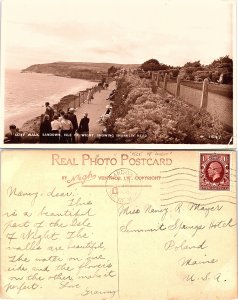 CLIFF WALK, SANDOWN, ISLE OF WIGHT, SHOWING SHANKLIN HEAD
REAL PHOTO POSTCARD
Isle of Wight
By Nigh's VENTNOR I.W. COPYRIGHT
Nancy, dear.
This is a beautiful
part of the Isle
of Wight. The
walks are beautiful,
the water on one
side and the flowers
on the other make it
perfect. Love
Granny
Miss Nancy R. Mayer
Summit Springs Hotel
Poland
Maine
U.S.A.